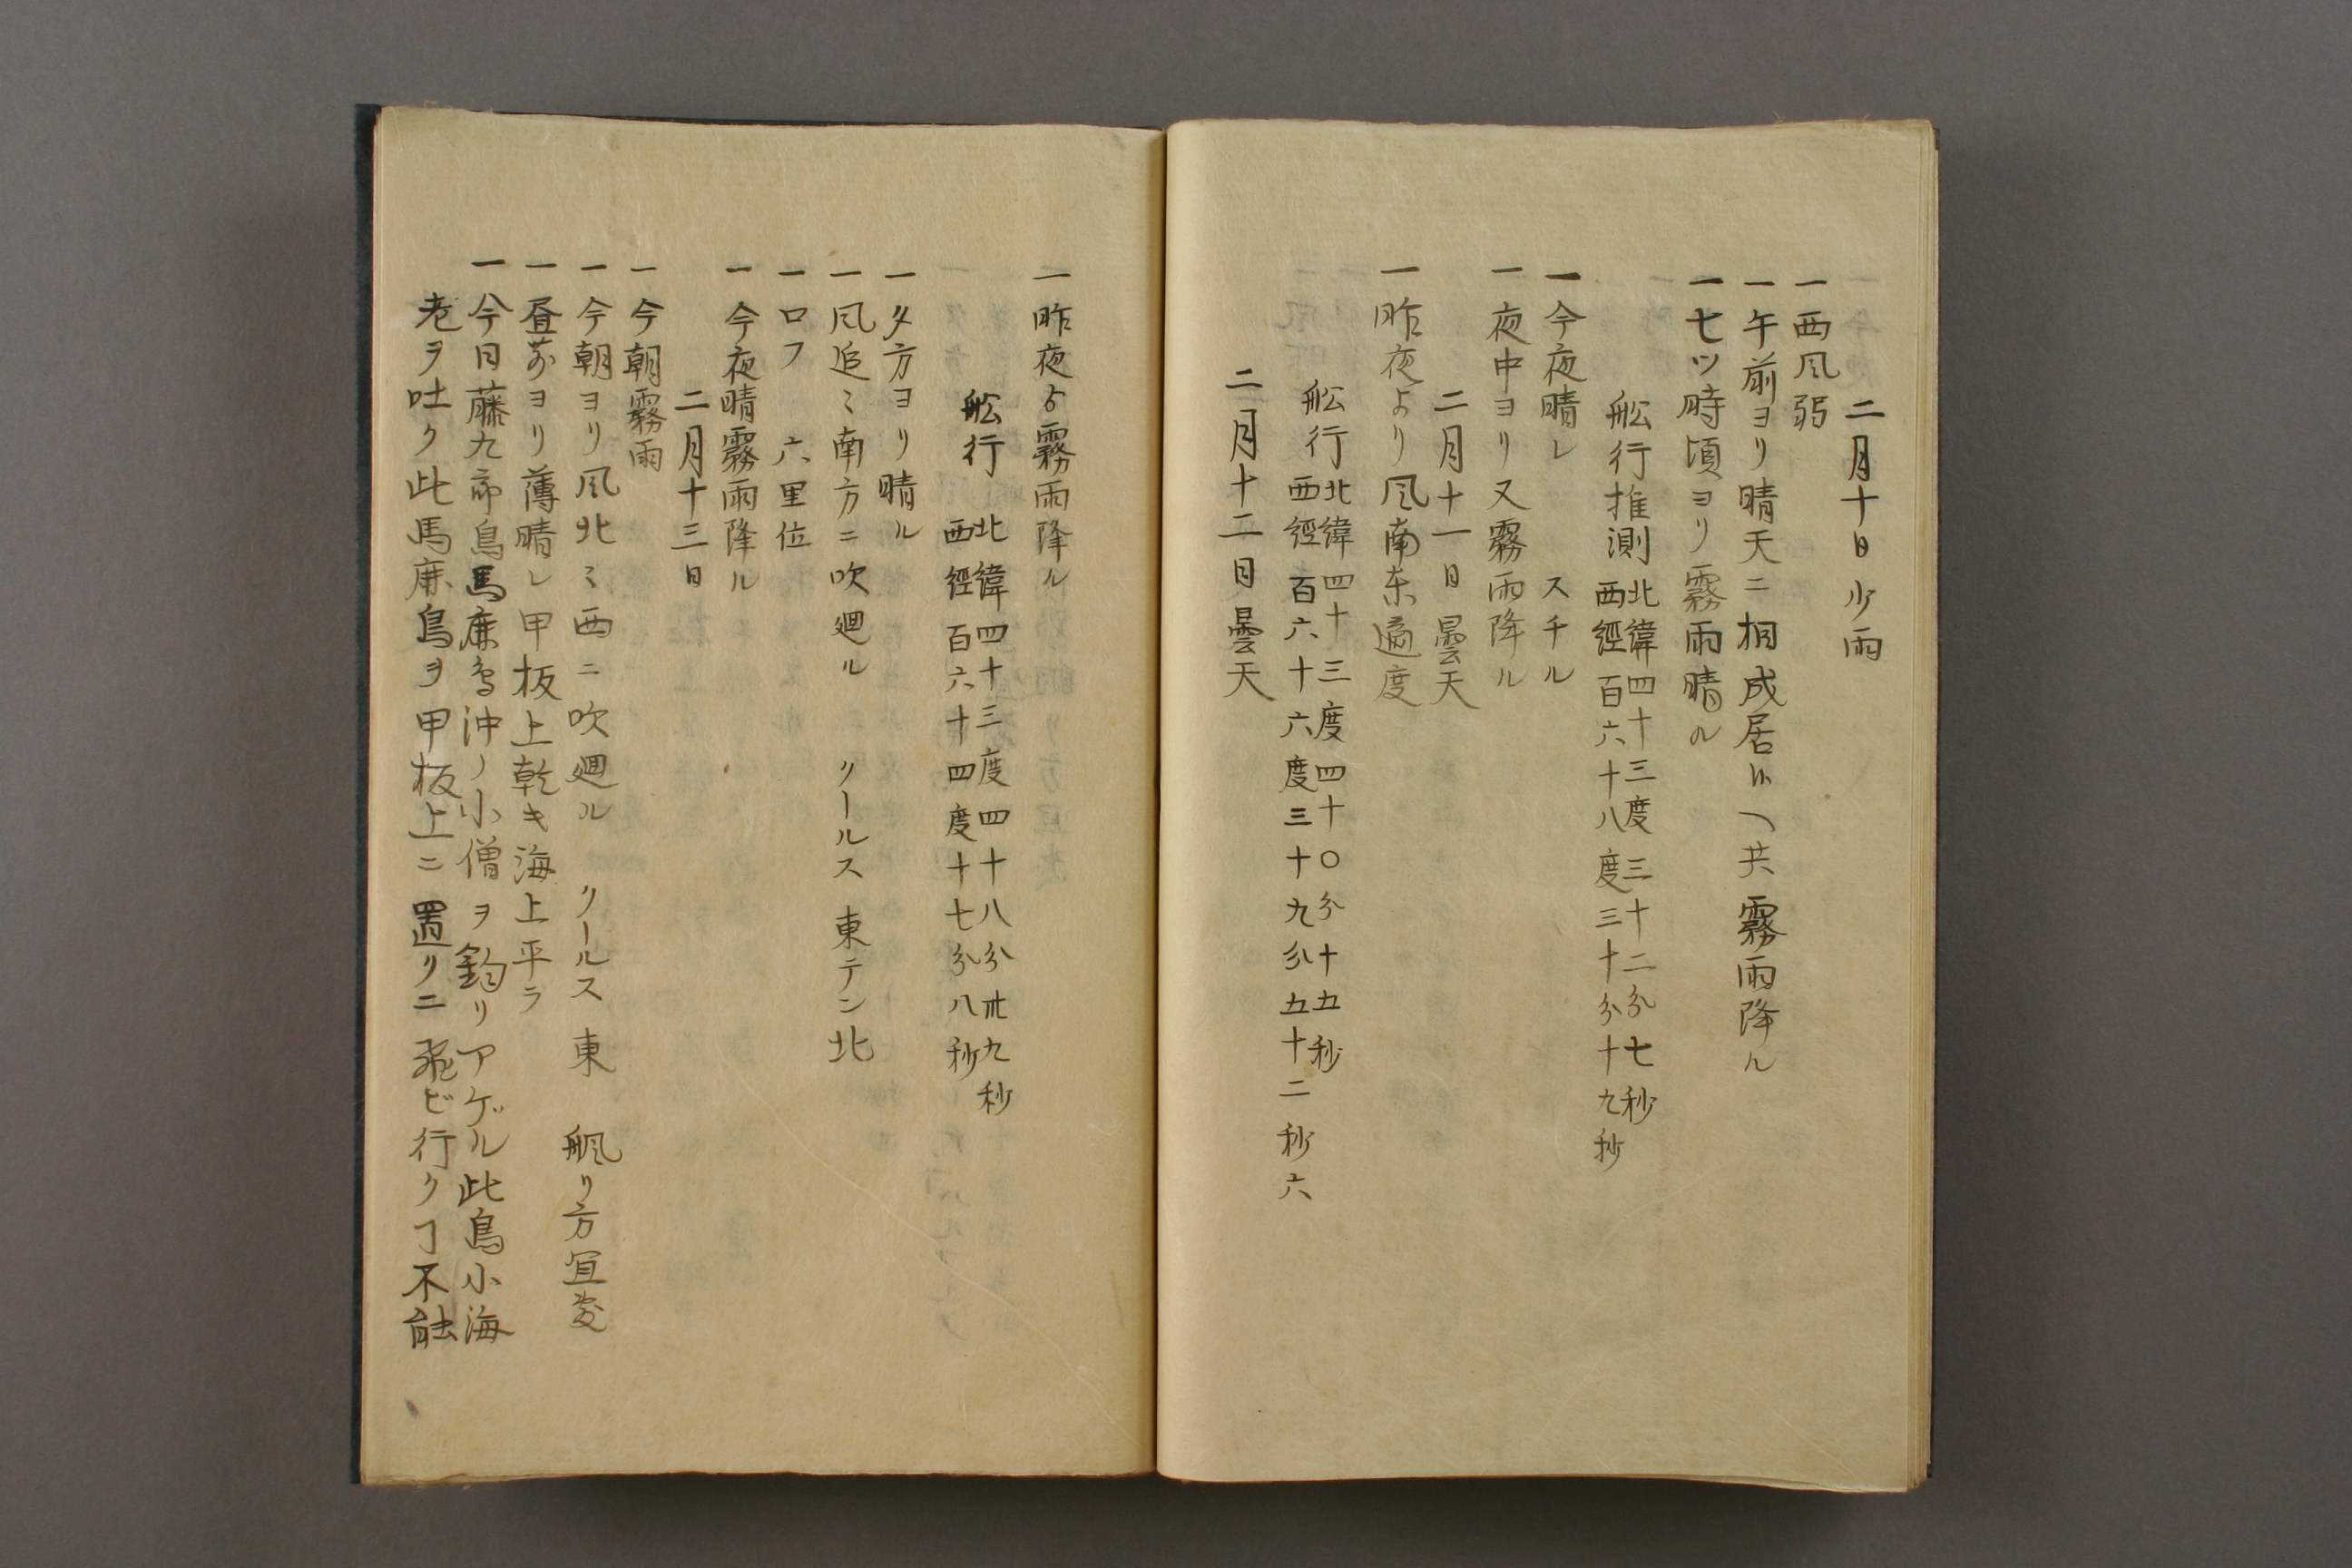 二月十日 少雨
一西風弱
一午前ヨリ晴天ニ相成居 共霧雨降ル
一七ツ時頃ヨリ霧雨晴ル
舩行推測 北緯四十三度三十二分七秒
西經百六十八度三十分十九秒
一今夜晴レ スチル
一夜中ヨリ又霧雨降ル
二月十一日 曇天
一昨夜より風南東適度
舩行 北緯四十三度四十〇分十五秒
西經百六十六度三十九分五十二秒六
二月十二日 曇天
一昨夜ゟ霧雨降ル
舩行 北緯四十三度四十八分卅九秒
西經百六十四度十七分八秒
一夕方ヨリ晴ル
一風追〻南方ニ吹廻ル リールス 東テン北
一ロフ 六里位
一今夜晴霧雨降ル
二月十三日
一今朝霧雨
一今朝ヨリ風北〻西ニ吹廻ル クールス 東 颿リ方宜敷
一昼前ヨリ薄晴レ甲板上乾キ海上平ラ
一今日藤九郎鳥馬鹿鳥沖ノ小僧ヲ釣リアゲル此鳥小海
老ヲ吐ク此馬鹿鳥ヲ甲板上ニ置リニ飛ビ行クヿ不能